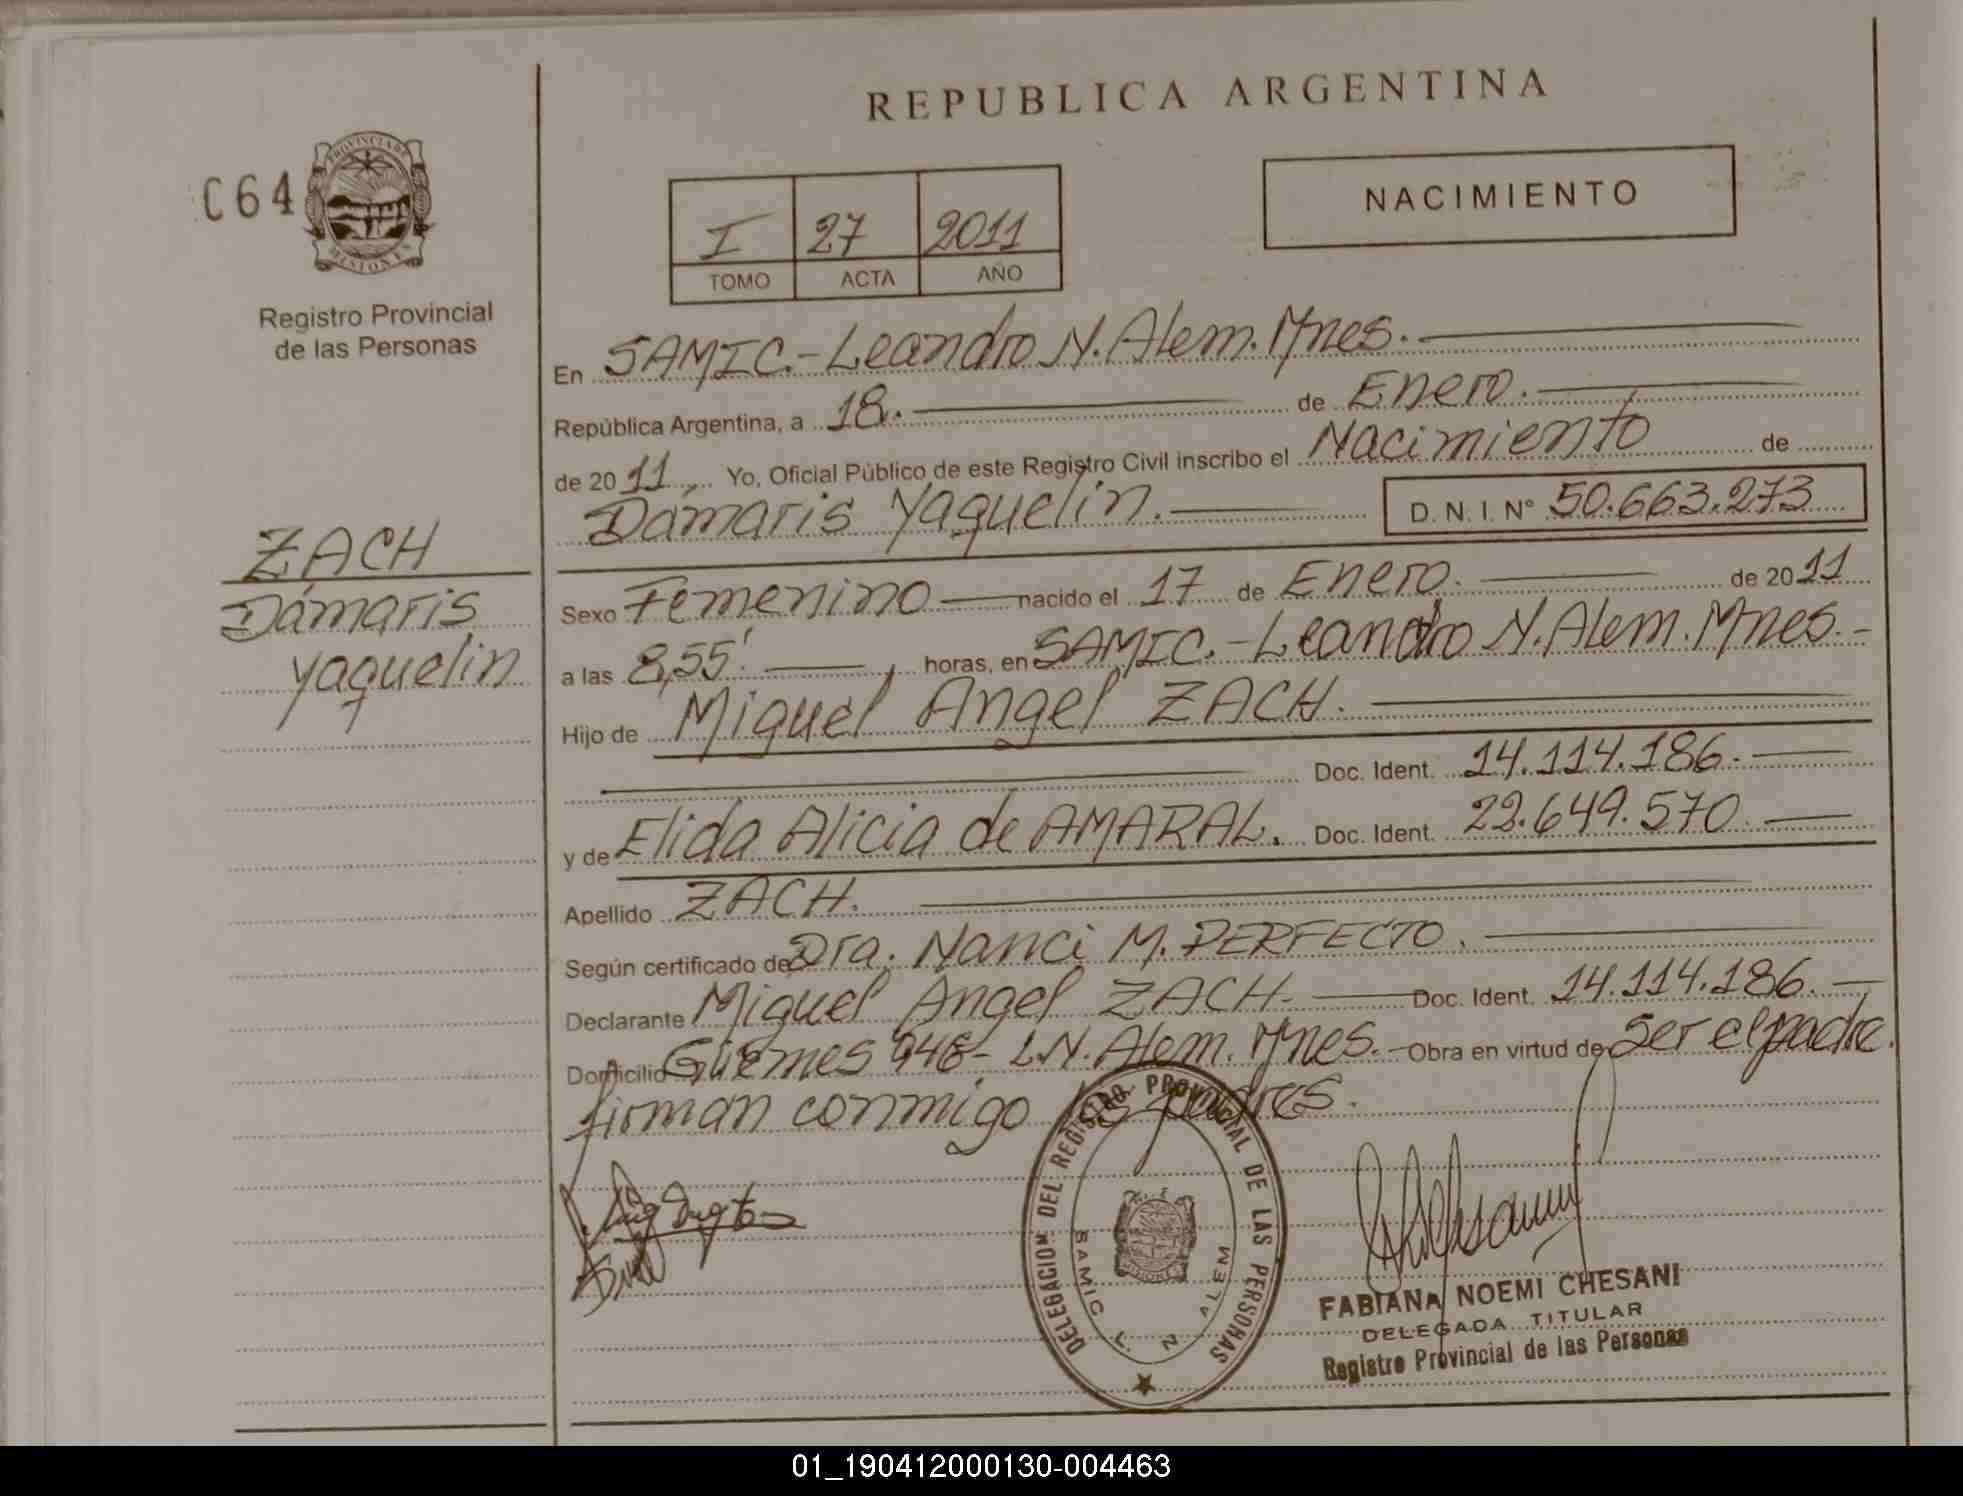 REPUBLICA ARGENTINA
C64
PROVINCIA DE
MISIONES
Registro Provincial
de las Personas
NACIMIENTO
I 27 2011
TOMO ACTA AÑO
En SAMIC.-Leandro N. Alem. Mnes.
República Argentina, a 18. de Enero.
de 2011 Yo, Oficial Público de este Registro Civil inscribo el Nacimiento de
Dámaris Yaquelin. D.N.I. Nº 50.663.273
ZACH
Dámaris
Yaquelin
Sexo Femenino nacido el 17 de Enero. de 2011
a las 8,55'. horas, en SAMIC.-Leandro N. Alem. Mnes.-
Hijo de Miguel Angel ZACH.
Doc. Ident. 14.114.186.
y de Elida Alicia de AMARAL. Doc. Ident. 22.649.570
Apellido ZACH.
Según certificado de Dra. Nanci M. PERFECTO.
Declarante Miguel Ángel ZACH. Doc. Ident. 14.114.186.
Domicilio Güemes 946- L.N. Alem. Mnes. Obra en virtud de Ser el padre.
firman conmigo los padres.
DELEGACION DEL REGISTRO PROVINCIAL DE LAS PERSONAS
SAMIC L. N ALEM
FABIANA NOEMI CHESANI
DELEGADA TITULAR
Registro Provincial de las Personas
01_190412000130-004463